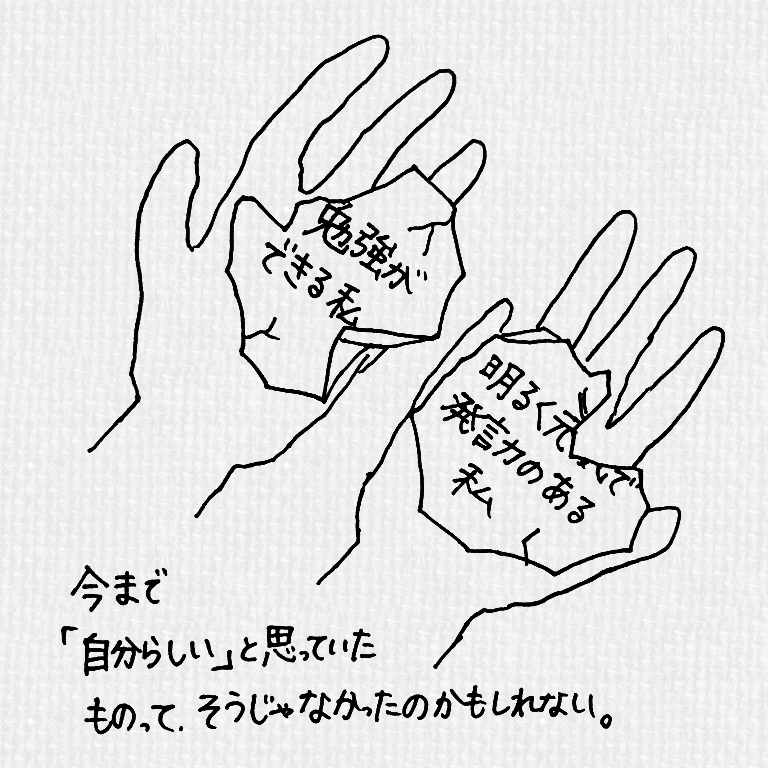 勉強が
できる私
明るく元気で
発言力のある
私
今まで
「自分らしい」と思っていた
ものって、そうじゃなかったのかもしれない。